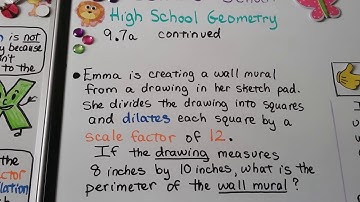 High School Geometry
9.7a continued
is not
y because
n't
to the
• Emma is creating a wall mural
from a drawing in her sketch pad.
She divides the drawing into squares
and dilates each square by a
scale factor of 12.
If the drawing measures
8 inches by 10 inches, what is the
perimeter of the wall mural?
the
ctor
lation